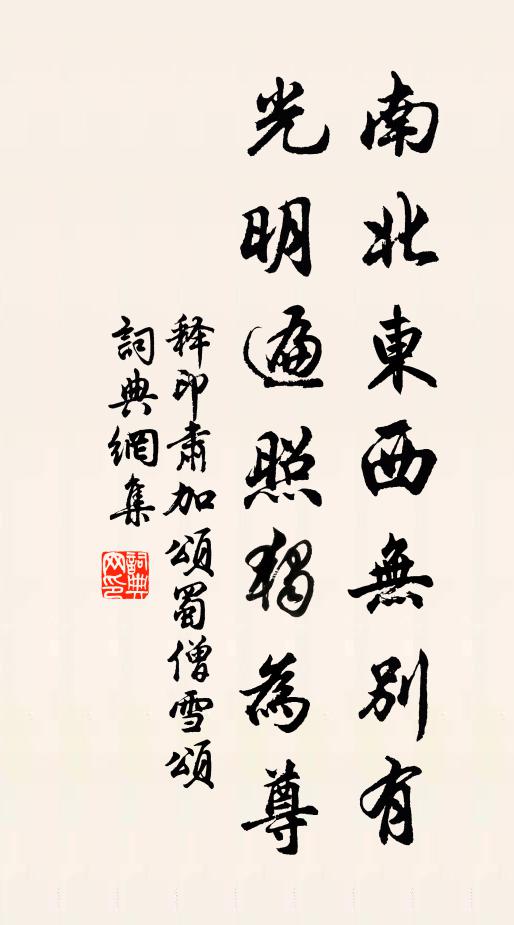 南北東西無別有
光明遍照獨為尊
释印肅加頌蜀僧雪頌
詞典網集
詞典网印